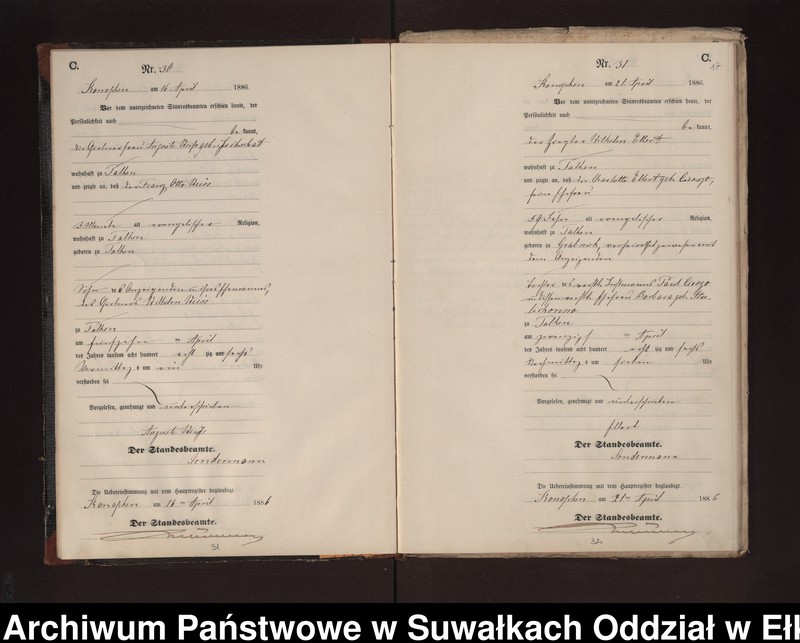 C.
Nr. 30
Konopken am 16 April 1886.
Vor dem unterzeichneten Standesbeamten erschien heute, der
Persönlichkeit nach
be kannt,
wohnhaft zu Talken
und zeigte an, daß der Franz Otto Weiss
3 Monate alt evangelischer Religion,
wohnhaft zu Talken
geboren zu Talken
Sohn des Anzeigenden u. ihres Ehemannes,
des Wilhelm Weiss
zu Talken
am fünfzehn ten April
des Jahres tausend acht hundert acht zig und sechs
Vormittags um ein Uhr
verstorben sei
Vorgelesen, genehmigt und unterschrieben
Auguste Weiss
Der Standesbeamte.
Sondermann
Die Uebereinstimmung mit dem Hauptregister beglaubigt.
Konopken am 16 ten April 1886
Der Standesbeamte.
31
C.
17
Nr. 31
Konopken am 21. April 1886.
Vor dem unterzeichneten Standesbeamten erschien heute, der
Persönlichkeit nach
be kannt,
der Wilhelm Ellert
wohnhaft zu Talken
und zeigte an, daß die Charlotte Ellert geb.
seine Ehefrau
59 Jahre alt evangelischer Religion,
wohnhaft zu Talken
geboren zu Grabnick, verheirathet gewesen mit
dem Anzeigenden
Tochter des Paul
und dessen Ehefrau Barbara geb.
zu Talken
am zwanzigst en April
des Jahres tausend acht hundert acht zig und sechs
Nachmittags um sieben Uhr
verstorben sei
Vorgelesen, genehmigt und unterschrieben
Ellert
Der Standesbeamte.
Sondermann
Die Uebereinstimmung mit dem Hauptregister beglaubigt.
Konopken am 21 ten April 1886
Der Standesbeamte.
32
Archiwum Państwowe w Suwałkach Oddział w Eł